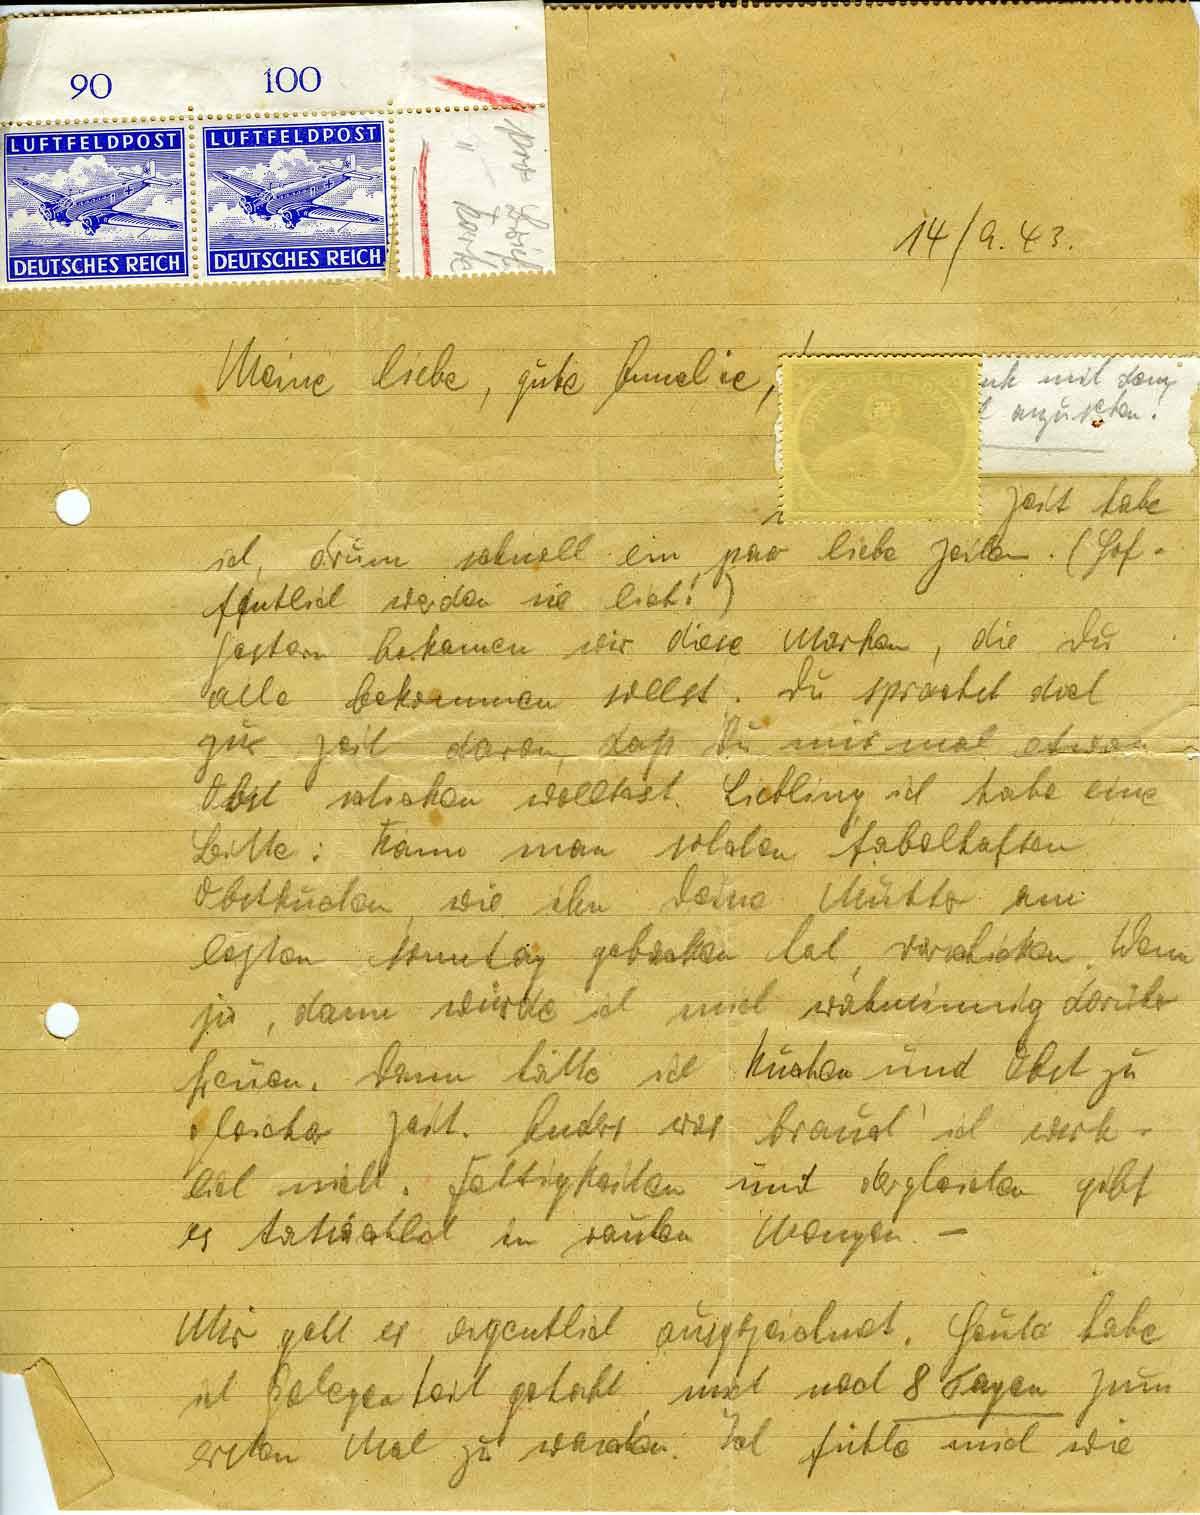 90 100
LUFTFELDPOST LUFTFELDPOST
DEUTSCHES REICH DEUTSCHES REICH
pro Brief
"
14/9.43.
Meine liebe, gute Annelie,
mit dem
anzusehen!
Zeit habe
ich, drum schnell ein paar liebe Zeilen. (Hof-
fentlich werden sie lieb!)
Gestern bekamen wir diese Marken, die Du
alle bekommen sollst. Du sprachst doch
zur Zeit davon, daß Du mir mal etwas
Obst schicken wolltest. Liebling ich habe eine
Bitte: Kann man solchen fabelhaften
Obstkuchen, wie ihn Deine Mutter am
letzten Sonntag gebacken hat, verschicken. Wenn
ja, dann würde ich mich wahnsinnig darüber
freuen. Dann hätte ich Kuchen und Obst zu
gleicher Zeit. Anders was brauch' ich wirk-
lich nicht. Fettigkeiten und dergleichen gibt
es tatsächlich in rauhen Mengen. —
Mir geht es eigentlich ausgezeichnet. Heute habe
ich Gelegenheit gehabt, mich nach 8 Tagen zum
ersten Mal zu waschen. Ich fühle mich wie